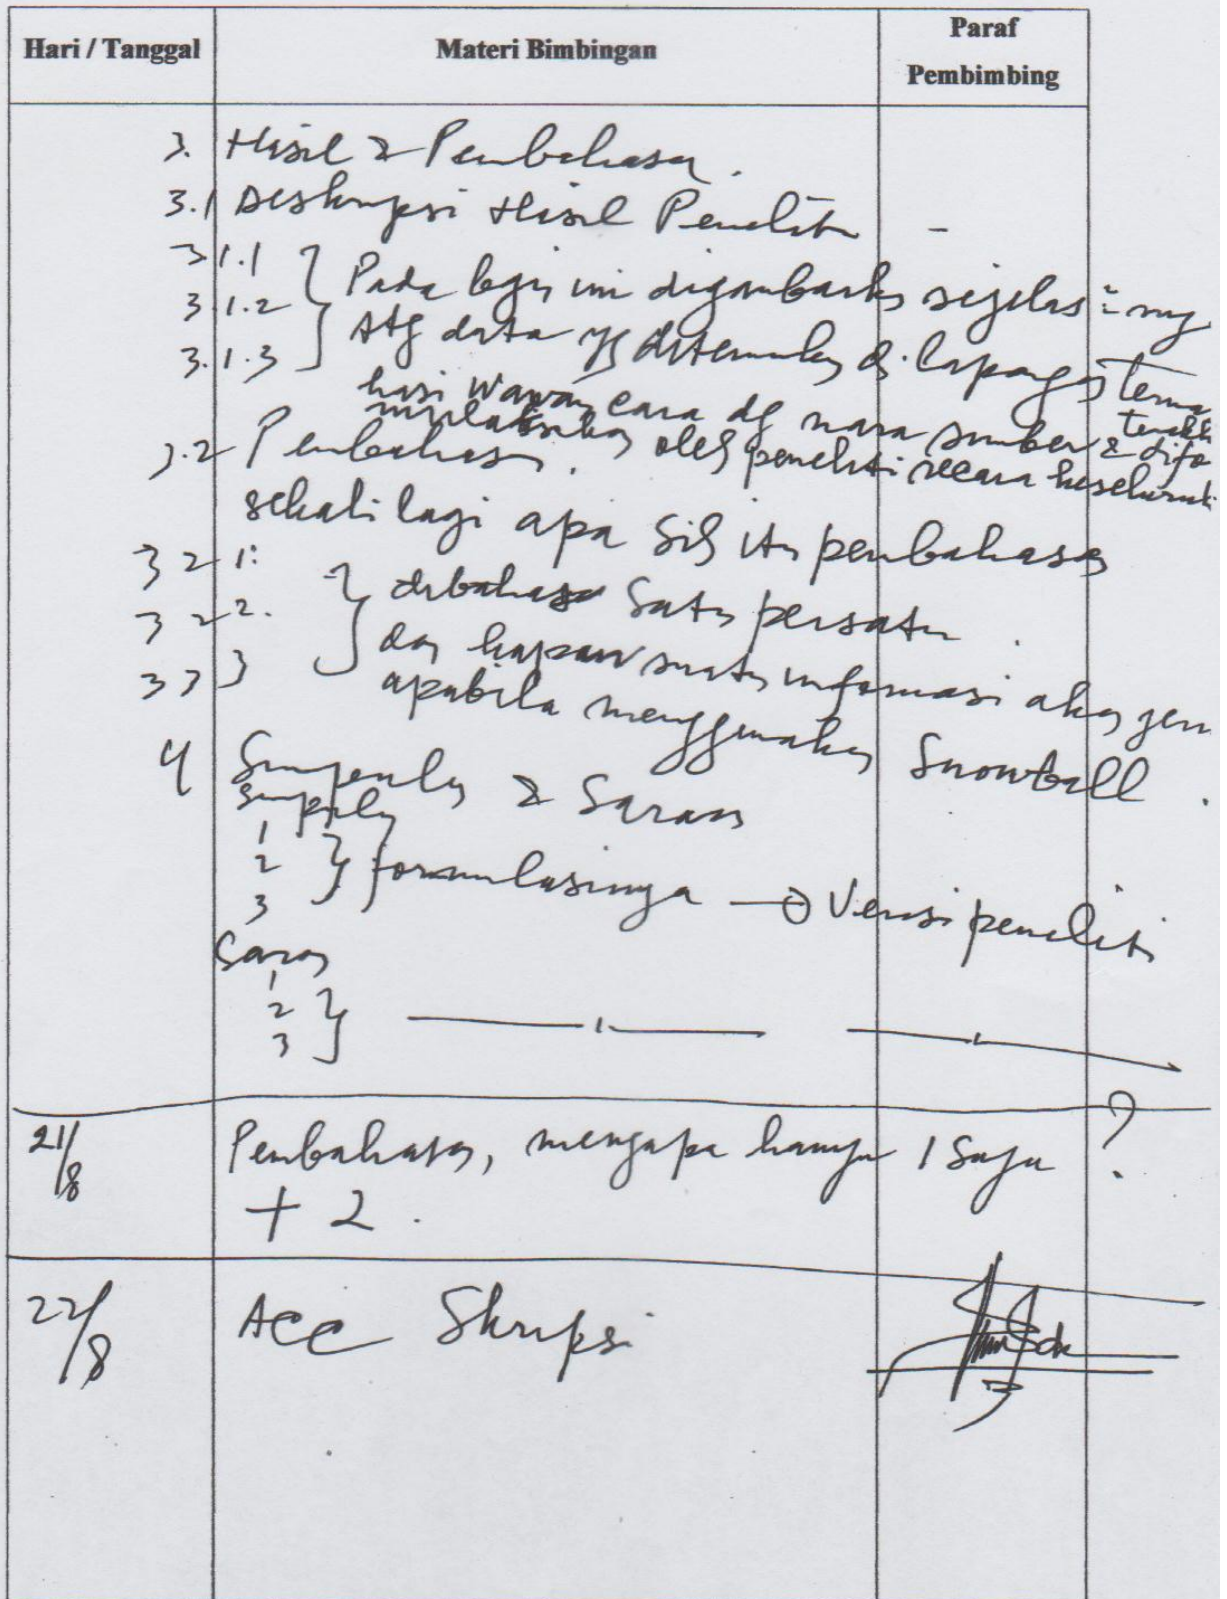 Hari / Tanggal
Materi Bimbingan
Paraf
Pembimbing
3. Hasil & Pembahasan.
3.1 Deskripsi Hasil Penelitian -
3.1.1
3.1.2
3.1.3
Pada bagian ini digambarkan sejelas²nya
ttg data yg ditemukan di lapangan terma
hasi wawancara dg nara sumber &
oleh peneliti secara keseluruh
3.2 Pembahasan.
sekali lagi apa sih itu pembahasan
3 2 1.
3 2 2.
3 3 3
dibahas satu persatu.
dan kapan suatu informasi akan jen
apabila menggunakan Snowball.
4 Simpulan & Saran
Simpulan
1
2
3
} formulasinya → Versi peneliti
Saran
1
2
3
21/8
Pembahasan, mengapa hanya 1 saja ?
+ 2.
22/8
Acc Skripsi